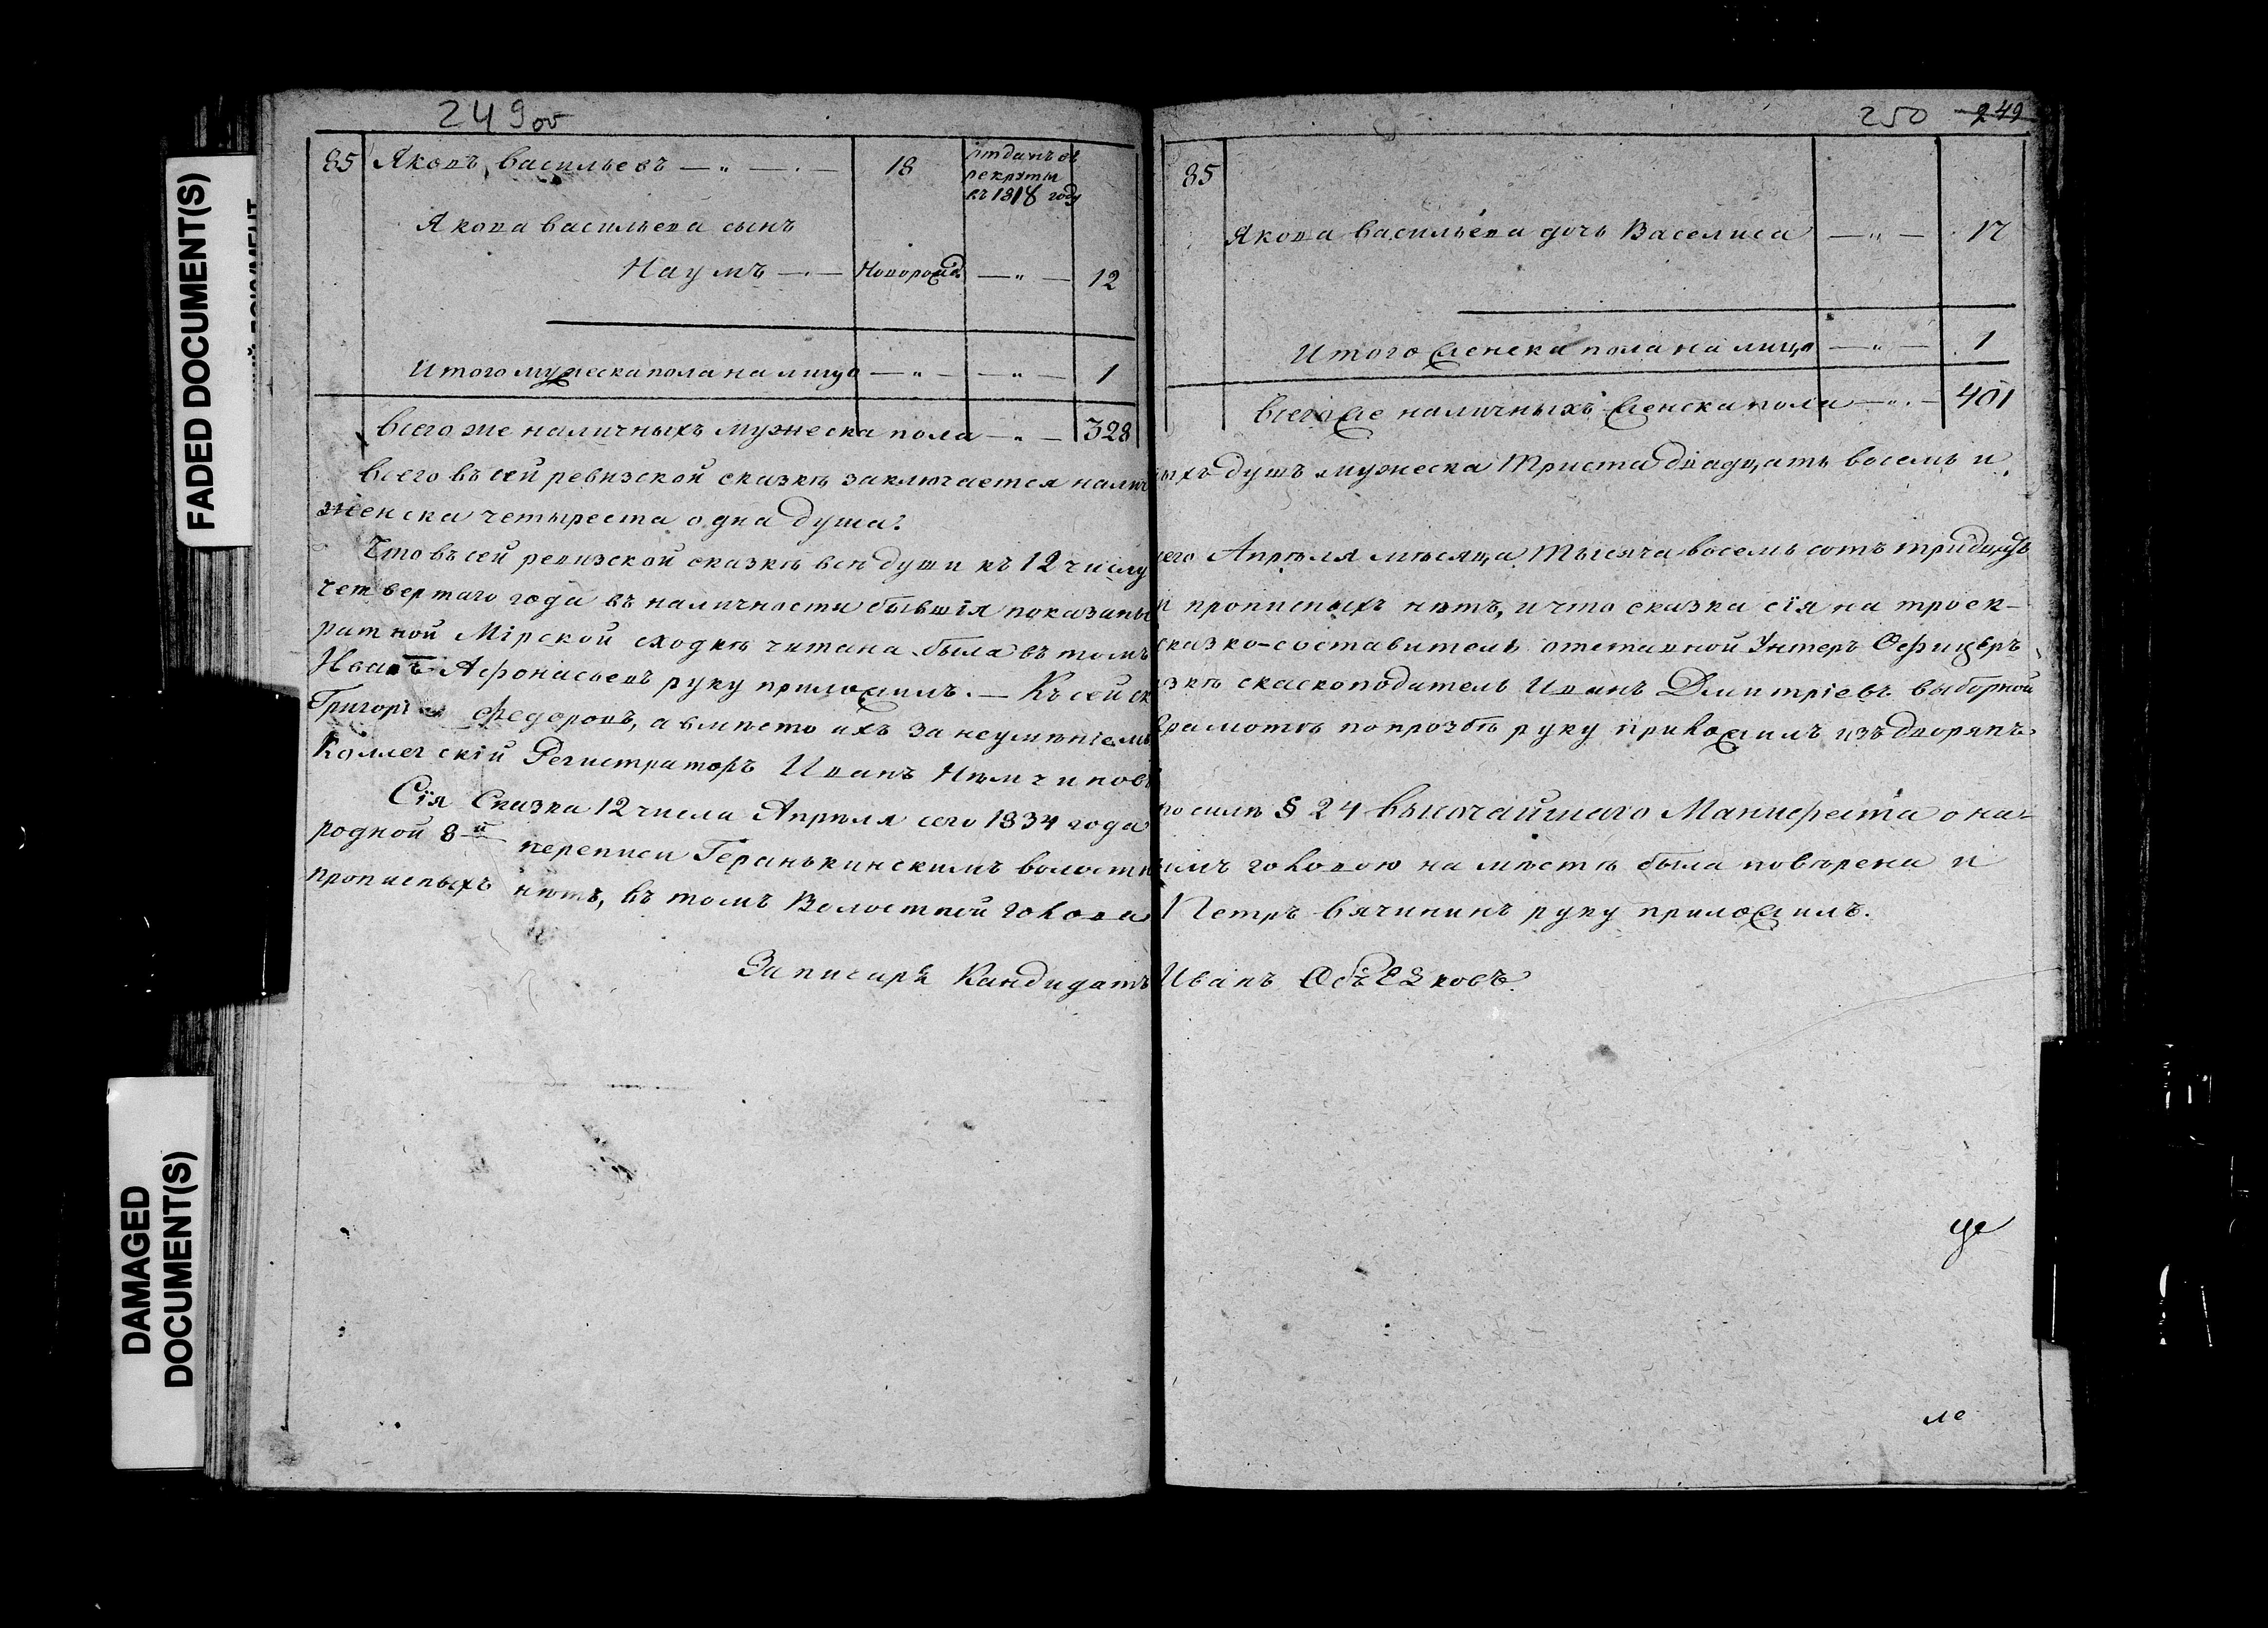 249об
85 Яковъ Васильевъ — „ — . — 18 отданъ въ
рекруты
въ 1818 году
Якова Васильева сынъ
Наумъ — . —Новорожд. — „ — 12
Итого мужеска пола на лицо — „ — — „ — 1
Всего же наличныхъ мужеска пола — „ — 328
250 249
85
Якова Васильева дочь Васелиса — „ — 17
Итого женска пола на лицо — „ — 1
Всего же наличныхъ женска пола — „ — 401
Всего въ сей ревизской сказкѣ заключается наличныхъ душъ мужеска Триста двадцать восемь и
женска четыреста одна душа.
Что въ сей ревизской сказкѣ всѣ души къ 12 числу сего Апрѣля мѣсяца Тысяча восемь сотъ тридцать
четвертаго года въ наличности бывшія показаны и прописныхъ нѣтъ, и что сказка сія на троек-
ратной Мірской сходкѣ читана была въ томъ сказко-составитель отставной Унтеръ Офицеръ
Иванъ Афонасьевъ руку приложилъ. — Къ сей сказкѣ сказкоподатель Иванъ Дмитріевъ выборной
Григорі Федоровъ, а вмѣсто ихъ за неумѣніемъ Грамотѣ по прозбѣ руку приложилъ изъ дворянъ
Коллег скій Регистраторъ Иванъ Нѣмчиновъ
Сія Сказка 12 числа Апрѣля сего 1834 года по силѣ § 24 Высочайшаго Манифеста о на-
родной 8-й переписи Геранькинскимъ волостнымъ головою на мѣстѣ была повѣрена и
прописныхъ нѣтъ, въ томъ Волостной голова Петръ Вячинин руку приложилъ.
За писаря Кандидатъ Иванъ Объезковъ.
це
ле
FADED DOCUMENT(S)
DAMAGED
DOCUMENT(S)